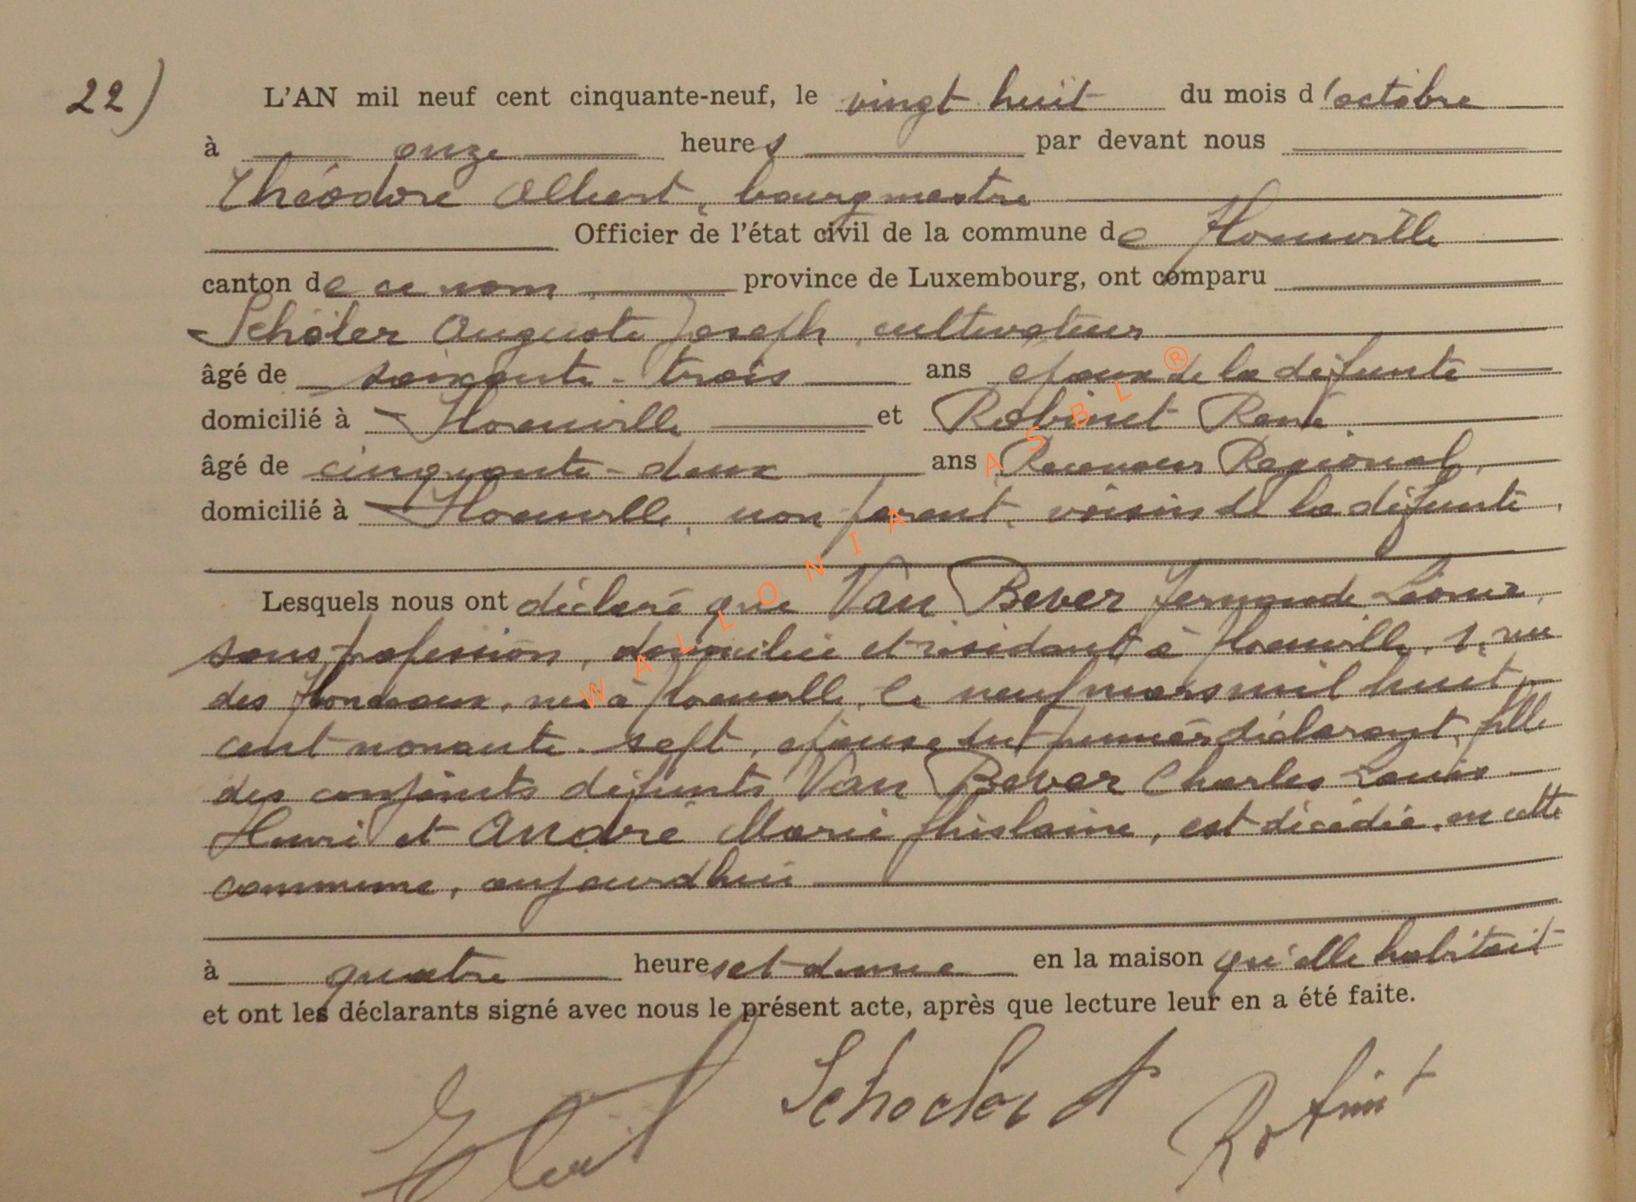 22) L'AN mil neuf cent cinquante-neuf, le vingt huit du mois d'octobre
à onze heures par devant nous
Théodore Albert, bourgmestre
Officier de l'état civil de la commune de Florenville
canton de ce nom province de Luxembourg, ont comparu
Schöler Auguste Joseph, cultivateur
âgé de soixante-trois ans époux de la défunte
domicilié à Florenville et Robinet René,
âgé de cinquante-deux ans Receveur Régional,
domicilié à Florenville, non parent, voisin de la défunte.
Lesquels nous ont déclaré que Van Bever Fernande Léonie,
sans profession, domiciliée et résidant à Florenville, 1, rue
des, née à Florenville, le neuf mars mil huit
cent nonante-sept, épouse du premier déclarant, fille
des conjoints défunts Van Bever Charles Louis
Henri et André Marie Ghislaine, est décédée, en cette
commune, aujourd'hui
à quatre heures et demie en la maison qu'elle habitait
et ont les déclarants signé avec nous le présent acte, après que lecture leur en a été faite.
WALLONIA ASBL ®